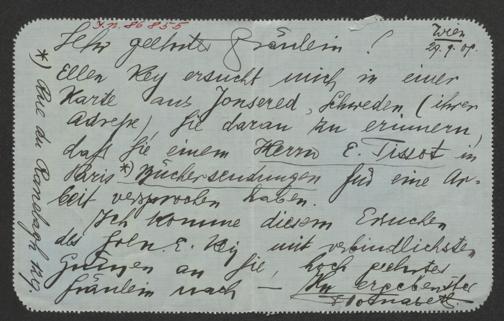 I.N. 86.855
Wien
29.9.09.
Sehr geehrtes Fräulein!
Ellen Key ersucht mich in einer
Karte aus Jonsered, Schweden (ihrer
Adresse) Sie daran zu erinnern,
daß Sie einem Herrn E. Tissot in
Paris *) Büchersendungen für eine Ar-
beit versprochen haben.
Ich komme diesem Ersuchen
des Frln. E. Key mit verbindlichsten
Grüßen an Sie, hoch geehrtes
Fräulein nach — Ihr ergebenster
*) Rue du Ranelagh